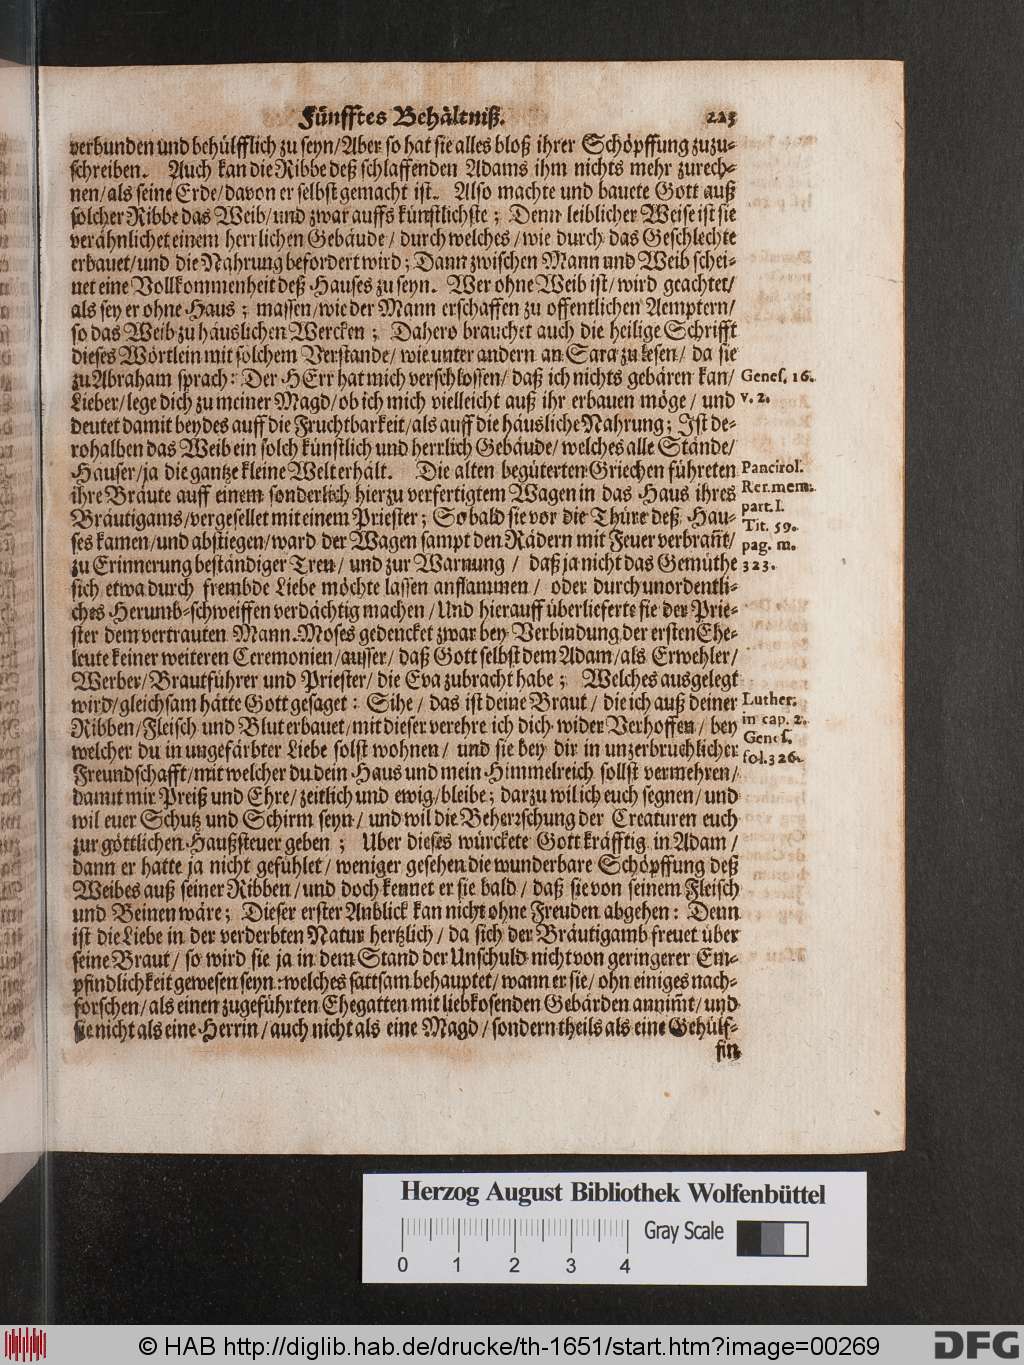 Fünfftes Behältniß. 225
verbunden und behülfflich zu seyn/Aber so hat sie alles bloß ihrer Schöpffung zuzu-
schreiben. Auch kan die Ribbe deß schlaffenden Adams ihm nichts mehr zurech-
nen/als seine Erde/davon er selbst gemacht ist. Also machte und bauete Gott auß
solcher Ribbe das Weib/und zwar auffs künstlichste; Denn leiblicher Weise ist sie
verähnlichet einem herrlichen Gebäude/ durch welches/wie durch das Geschlechte
erbauet/und die Nahrung befordert wird; Dann zwischen Mann und Weib schei-
net eine Vollkommenheit deß Hauses zu seyn. Wer ohne Weib ist/wird geachtet/
als sey er ohne Haus; massen/wie der Mann erschaffen zu offentlichen Aemptern/
so das Weib zu häuslichen Wercken; Dahero brauchet auch die heilige Schrifft
dieses Wörtlein mit solchem Verstande/wie unter andern an Sara zu lesen/ da sie
zu Abraham sprach: Der HErr hat mich verschlossen/daß ich nichts gebären kan/
Genes. 16.
Lieber/lege dich zu meiner Magd/ob ich mich vielleicht auß ihr erbauen möge/und
v. 2.
deutet damit beydes auff die Fruchtbarkeit/als auff die häusliche Nahrung; Ist de-
rohalben das Weib ein solch künstlich und herrlich Gebäude/welches alle Stände/
Häuser/ja die gantze kleine Welt erhält. Die alten begüterten Griechen führeten
Pancirol.
ihre Bräute auff einem sonderlich hierzu verfertigtem Wagen in das Haus ihres
Rer. mem.
Bräutigams/vergesellet mit einem Priester; So bald sie vor die Thüre deß Hau-
part. I.
Tit. 59.
ses kamen/und abstiegen/ward der Wagen sampt den Rädern mit Feuer verbrañt/
pag. m.
zu Erinnerung beständiger Treu/ und zur Warnung/ daß ja nicht das Gemüthe
323.
sich etwa durch frembde Liebe möchte lassen anflammen/ oder durch unordentli-
ches Herumb-schweiffen verdächtig machen/Und hierauff überlieferte sie der Prie-
ster dem vertrauten Mann. Moses gedencket zwar bey Verbindung der ersten Ehe-
leute keiner weiteren Ceremonien/ausser/daß Gott selbst dem Adam/als Erwehler/
Werber/Brautführer und Priester/die Eva zubracht habe; Welches ausgelegt
wird/gleichsam hätte Gott gesaget: Sihe/das ist deine Braut/die ich auß deiner
Luther.
Ribben/Fleisch und Blut erbauet/mit dieser verehre ich dich wider Verhoffen/bey
in cap. 2.
welcher du in ungefärbter Liebe solst wohnen/ und sie bey dir in unzerbruchlicher
Genes.
fol. 326.
Freundschafft/mit welcher du dein Haus und mein Himmelreich sollst vermehren/
damit mir Preiß und Ehre/zeitlich und ewig/bleibe; darzu wil ich euch segnen/und
wil euer Schutz und Schirm seyn/ und wil die Beherrschung der Creaturen euch
zur göttlichen Haußsteuer geben; Uber dieses würckete Gott kräfftig in Adam/
dann er hatte ja nicht gefühlet/weniger gesehen die wunderbare Schöpffung deß
Weibes auß seiner Ribben/und doch kennet er sie bald/daß sie von seinem Fleisch
und Beinen wäre; Dieser erster Anblick kan nicht ohne Freuden abgehen: Denn
ist die Liebe in der verderbten Natur hertzlich/da sich der Bräutigamb freuet über
seine Braut/ so wird sie ja in dem Stand der Unschuld nicht von geringerer Em-
pfindlichkeit gewesen seyn: welches sattsam behauptet/wann er sie/ohn einiges nach-
forschen/als einen zugeführten Ehegatten mit liebkosenden Gebärden annim̃t/und
sie nicht als eine Herrin/auch nicht als eine Magd/sondern theils als eine Gehülf-
fin
Herzog August Bibliothek Wolfenbüttel
Gray Scale
0 1 2 3 4
© HAB http://diglib.hab.de/drucke/th-1651/start.htm?image=00269
DFG